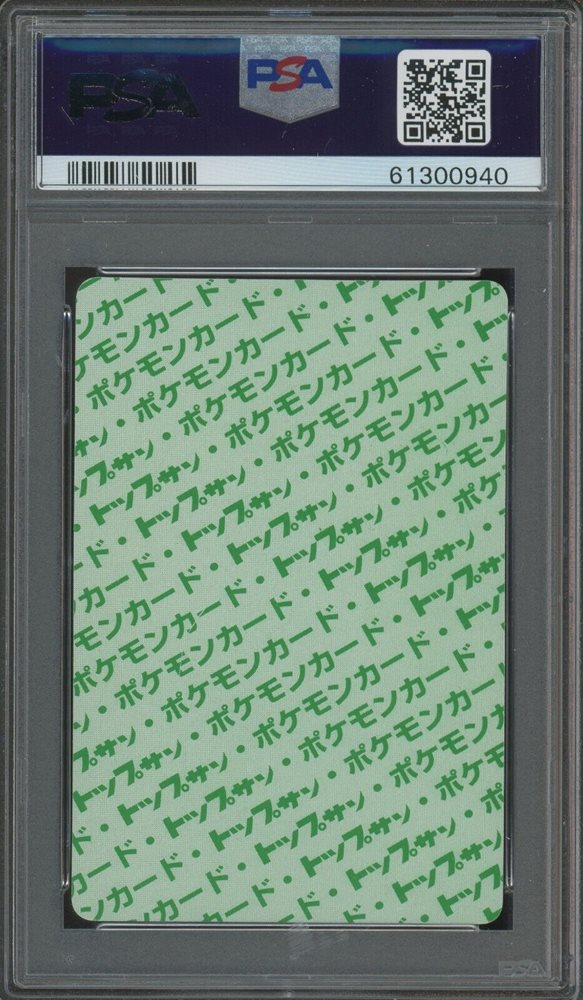 PSA
PSA
61300940
ンカード
ケモンカード・
・ポケモンカード・ト
サン・ポケモンカード・トップ
ップサン・ポケモンカード・トップ
トップサン・ポケモンカード・
・トップサン・ポケモンカード
ード・トップサン・ポケモン
カード・トップサン・ポケ
モンカード・トップサン・
ポケモンカード・トップサン
・ポケモンカード・トップ
サン・ポケモンカード・
ップサン・ポケモンカード
トップサン・ポケモンカ
・トップサン・ポケモン
ード・トップサン・ポ
ンカード・トップサン
カード・トップサン
ド・トップ
PSA